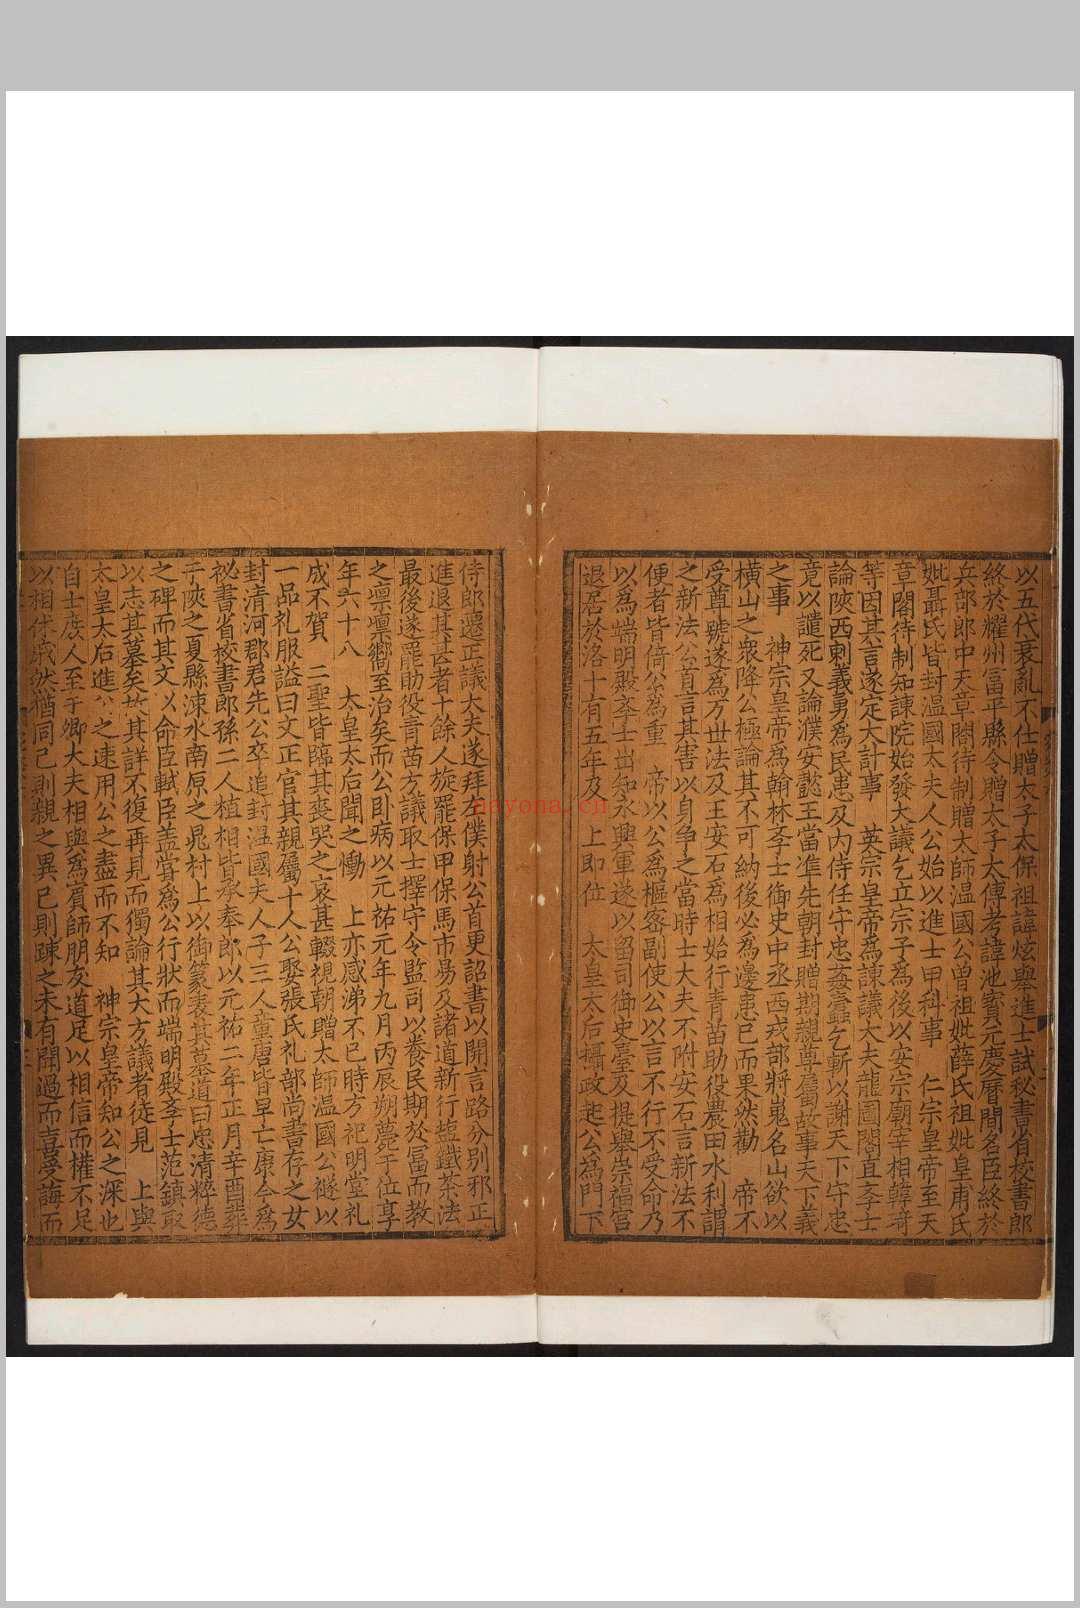 以五代衰亂不仕贈太子太保祖諱炫舉進士試秘書省校書郎
終於耀州富平縣令贈太子太傅考諱池寳元慶曆間名臣終於
兵部郎中天章閣待制贈太師温國公曽祖妣薛氏祖妣皇甫氏
妣聶氏皆封温國太夫人公始以進士甲科事 仁宗皇帝至天
章閣待制知諫院始發大議乞立宗子為後以安宗廟宰相韓琦
等因其言遂定大計事 英宗皇帝為諫議大夫龍圖閣直孝士
論陝西剌義勇為民患及内侍任守忠姦蠧乞斬以謝天下守忠
竟以譴死又論濮安懿王當凖先朝封贈期親尊屬故事天下義
之事 神宗皇帝為翰林孝士御史中丞西戎部將嵬名山欲以
横山之衆降公極論其不可納後必為邊患已而果然勸 帝不
受尊號遂為万世法及王安石為相始行青苗助役農田水利謂
之新法公首言其害以身争之當時士大夫不附安石言新法不
便者皆倚公為重 帝以公為樞密副使公以言不行不受命乃
以為端明殿孝士出知永興軍遂以留司御史臺及提舉崇福宫
退居於洛十有五年及 上即位 太皇太后攝政起公為門下
侍郎遷正議大夫遂拜左僕射公首更詔書以開言路分别邪正
進退其甚者十餘人旋罷保甲保馬市易及諸道新行塩鐵茶法
最後遂罷助役青苗方議取士擇守令監司以養民期於富而教
之凛凛嚮至治矣而公卧病以元祐元年九月丙辰朔薨于位享
年六十八 太皇太后聞之慟 上亦感涕不已時方祀明堂礼
成不賀 二聖皆臨其喪哭之哀甚輟視朝贈太師温國公襚以
一品礼服謚曰文正官其親屬十人公娶張氏礼部尚書存之女
封清河郡君先公卒追封温國夫人子三人童唐皆早亡康今為
祕書省校書郎孫二人植相皆承奉郎以元祐二年正月辛酉葬
于陝之夏縣涑水南原之晁村上以御篆表其墓道曰忠清粹德
之碑而其文以命臣軾臣盖嘗為公行狀而端明殿孝士范鎮取
以志其墓矣故其詳不復再見而獨論其大方議者徒見 上與
太皇太后進公之速用公之盡而不知 神宗皇帝知公之深也
自士庶人至于卿大夫相與為賔師朋友道足以相信而權不足
以相休戚然猶同己則親之異己則踈之未有聞過而喜受誨而
nayona.cn